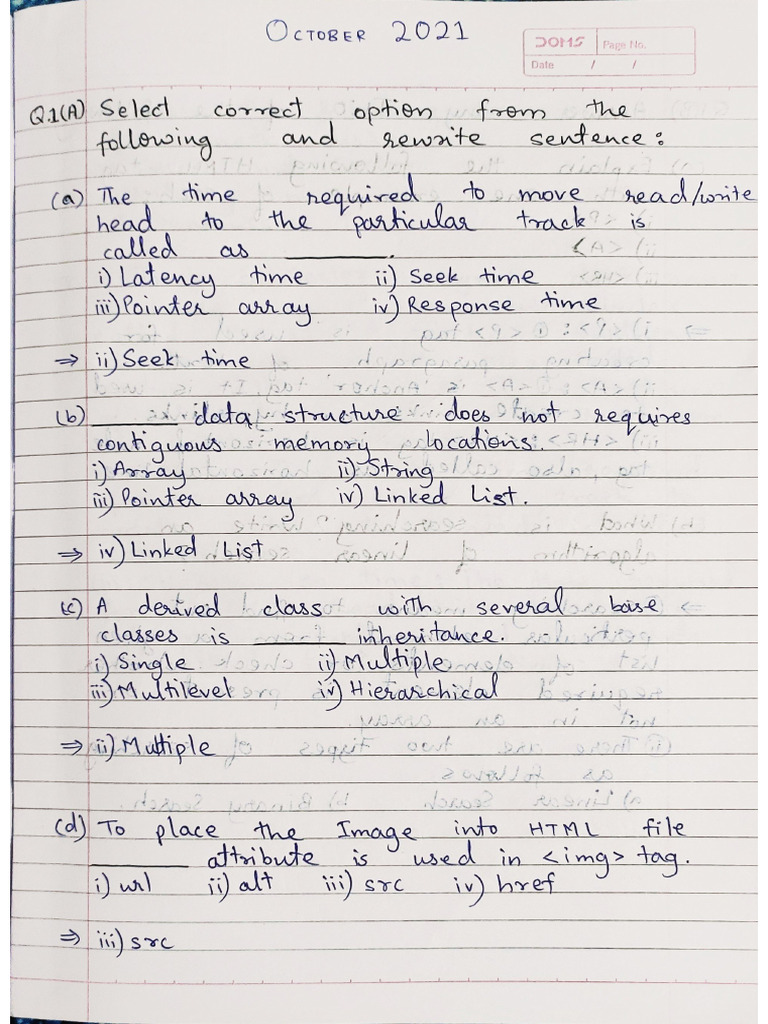 OCTOBER 2021
DOMS Page No.
Date / /
Q.1(A) Select correct option from the
following and rewrite sentence:
(a) The time required to move read/write
head to the particular track is
called as ________.
i) Latency time ii) Seek time
iii) Pointer array iv) Response time
⇒ ii) Seek time
(b) ________ data structure does not requires
contiguous memory locations.
i) Array ii) String
iii) Pointer array iv) Linked List.
⇒ iv) Linked List
(c) A derived class with several base
classes is ________ inheritance.
i) Single ii) Multiple
iii) Multilevel iv) Hierarchical
⇒ ii) Multiple
(d) To place the Image into HTML file
________ attribute is used in <img> tag.
i) url ii) alt iii) src iv) href
⇒ iii) src